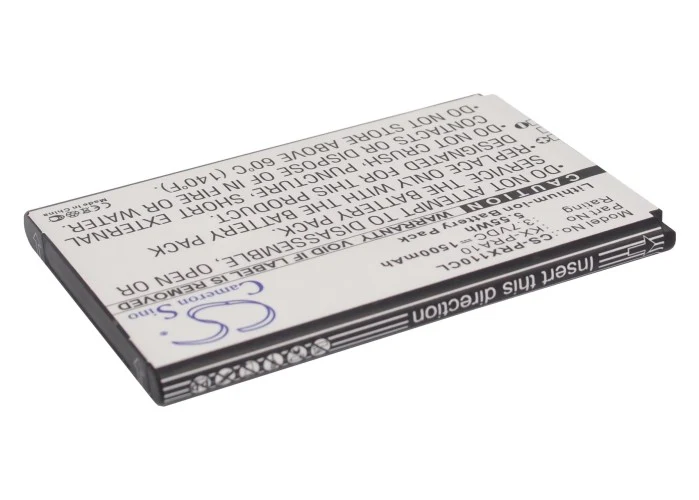 Cameron Sino
CS
Model No: CS-PRX110CL
Part No: KX-PRA10
Rating: 3.7VDC 1500mAh
5.55Wh
Lithium-ion Battery Pack
CAUTION
WARRANTY VOID IF LABEL IS REMOVED
REPLACE BATTERY ONLY WITH
DESIGNATED
DO NOT CRUSH, PUNCTURE, SHORT EXTERNAL
CONTACTS OR DISPOSE OF IN FIRE OR WATER.
DO NOT STORE ABOVE 60°C (140°F).
DO NOT DISASSEMBLE, OPEN BATTERY PACK
Made in China
CE
Insert this direction